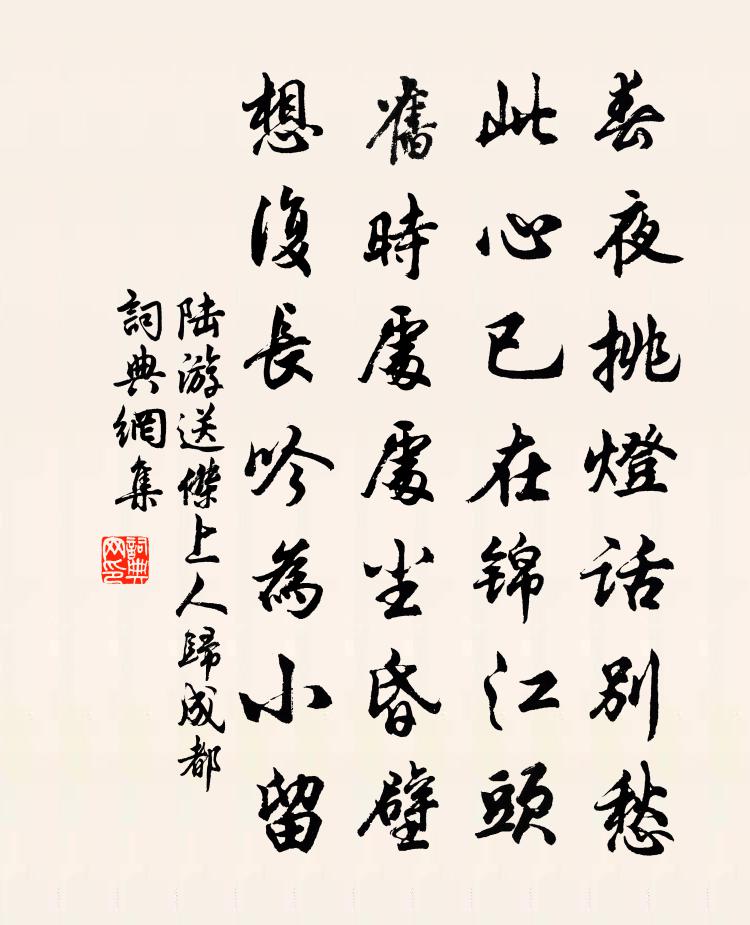 春夜挑燈話別愁
此心已在錦江頭
舊時處處尘昏壁
想復長吟為小留
陸游送傑上人歸成都
詞典網集
詞典网印